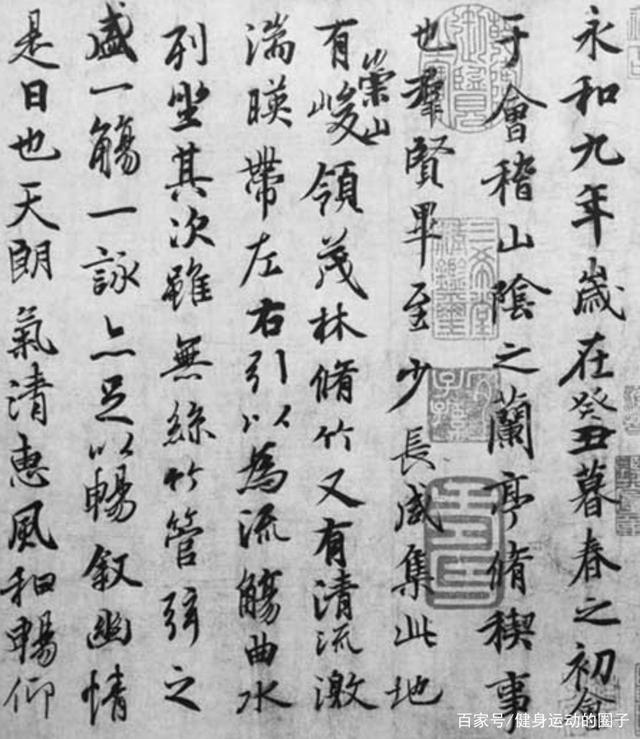 永和九年歲在癸丑暮春之初會
于會稽山陰之蘭亭脩稧事
也群賢畢至少長咸集此地
有崇山峻領茂林脩竹又有清流激
湍暎帶左右引以為流觴曲水
列坐其次雖無絲竹管弦之
盛一觴一詠亦足以暢敘幽情
是日也天朗氣清惠風和暢仰
百家号/健身运动的圈子